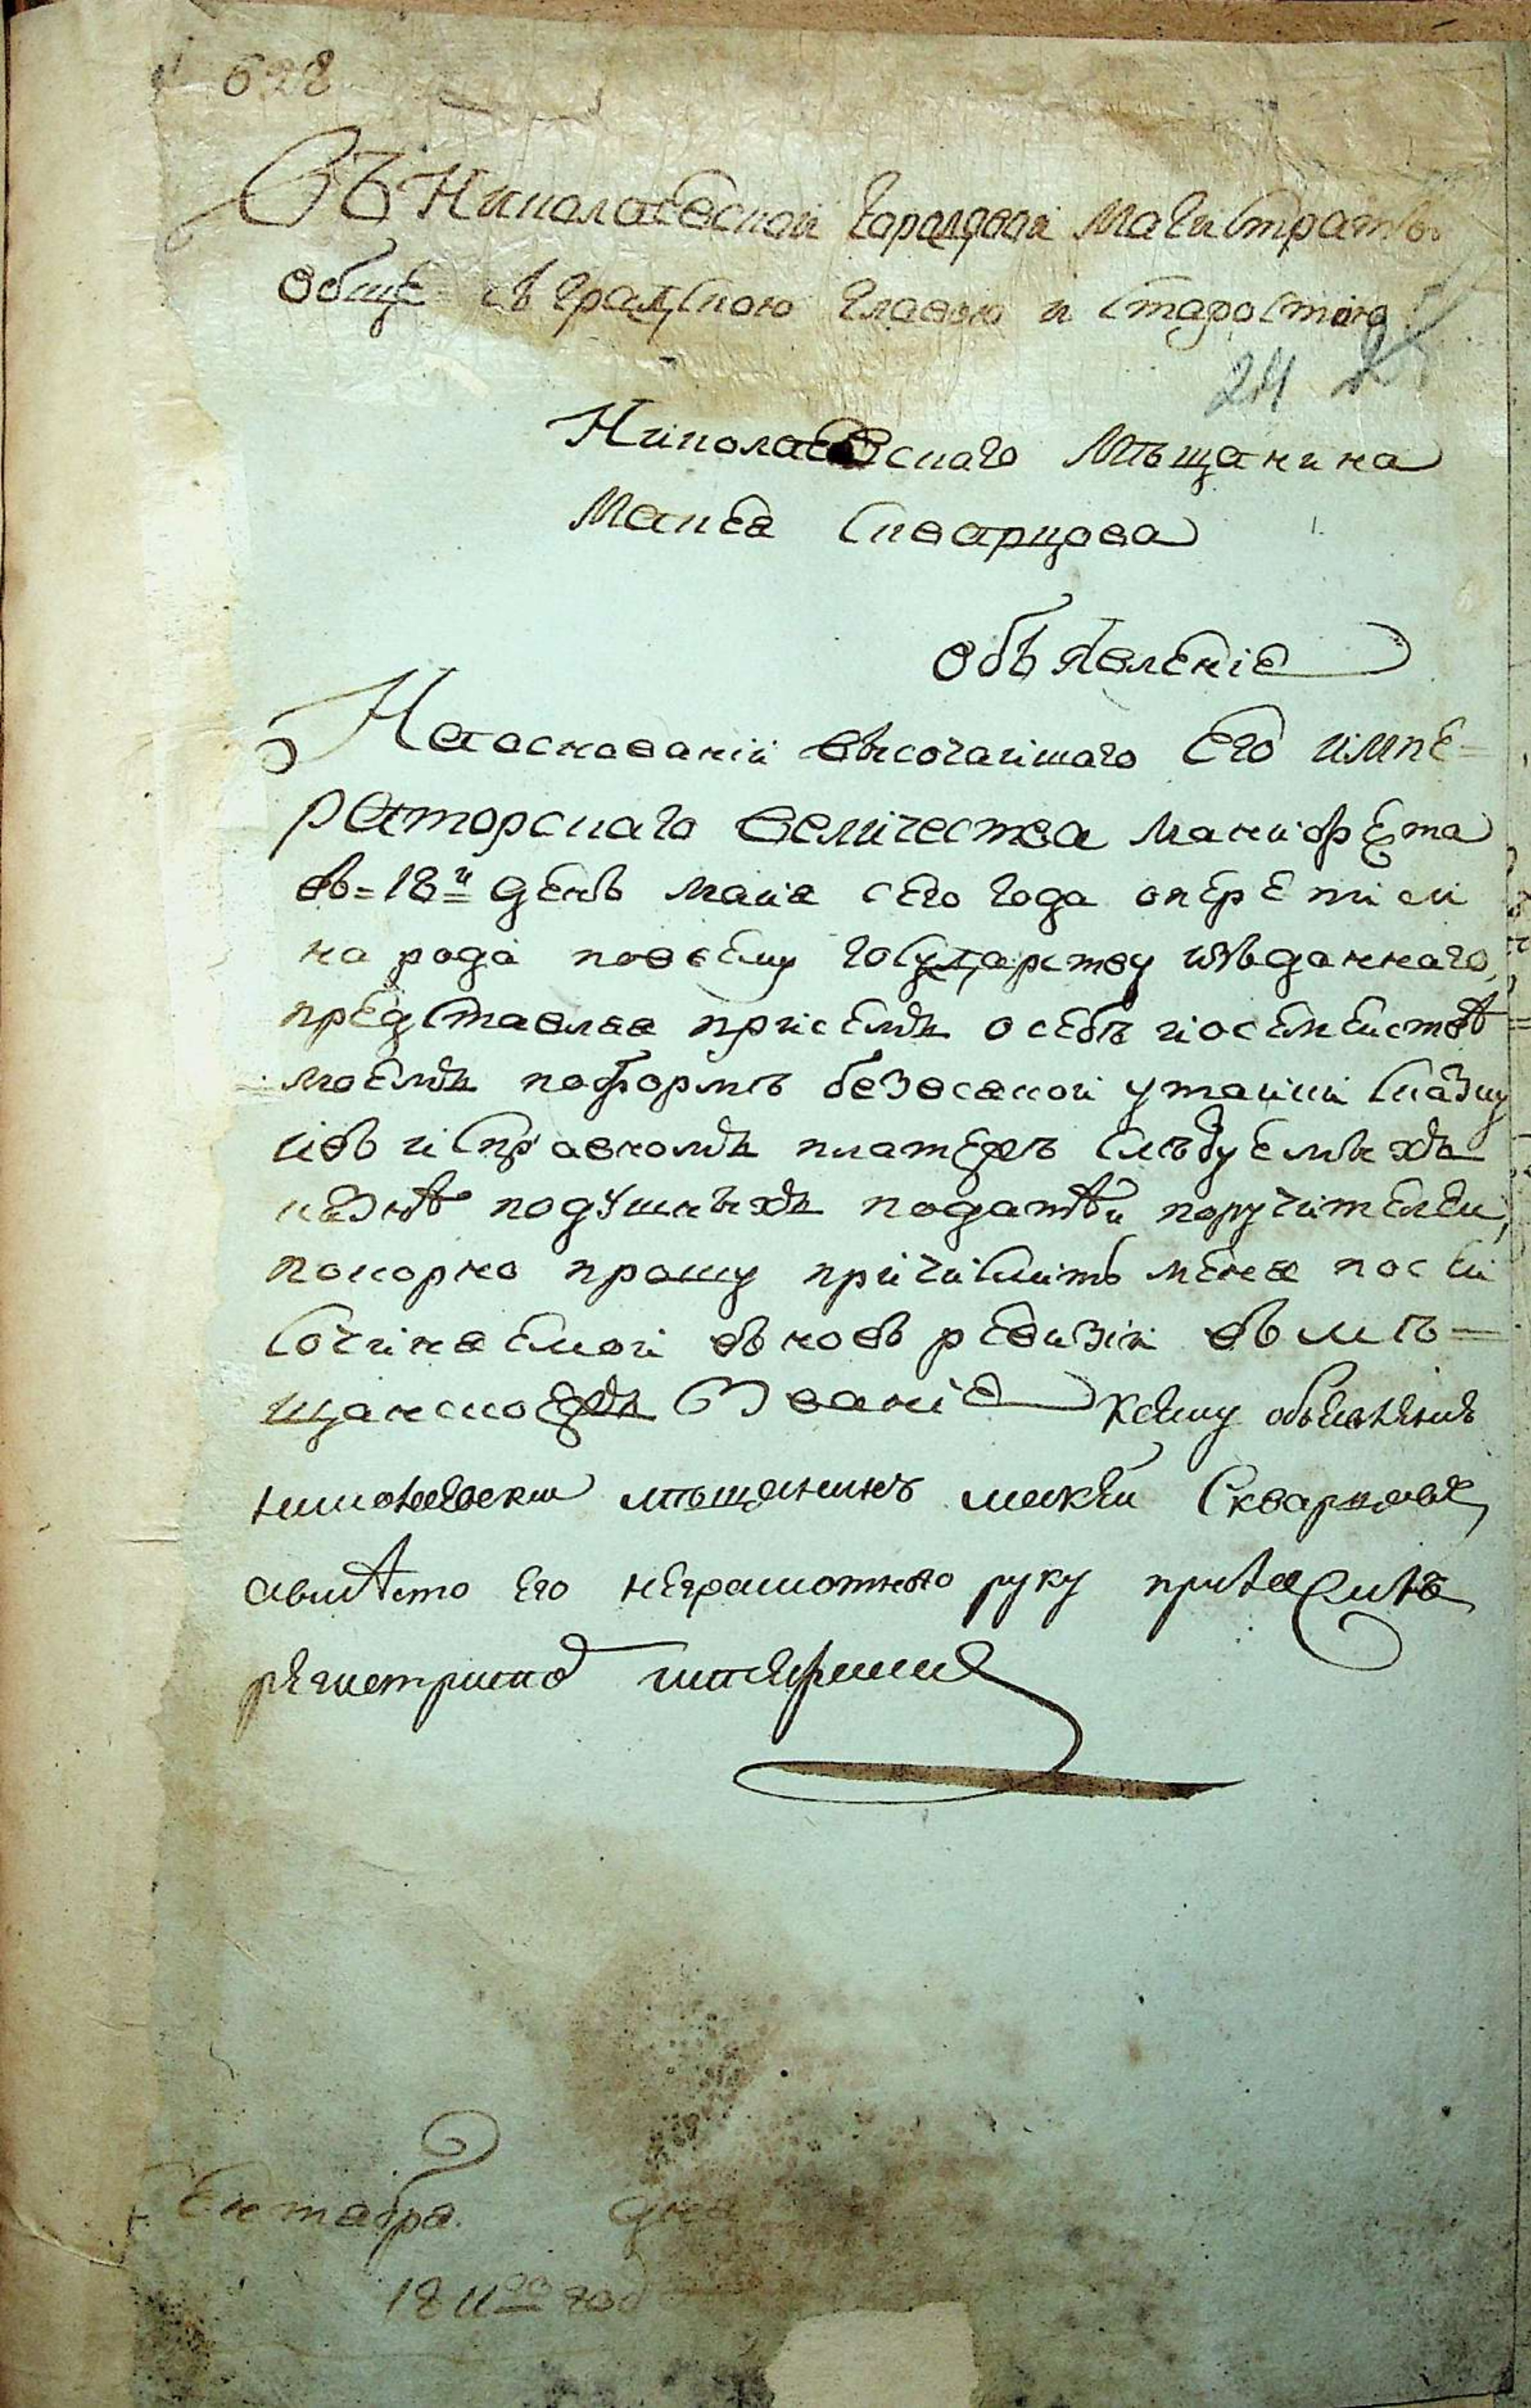 628
Въ Николаевской городовой магистратъ
обще съ градскою главою и старостою
24
Николаевскаго мѣщанина
Макѣя Скварцова
объявленіе
На основаніи высочаишаго Его импе=
раторскаго величества манифѣста
въ=18й день маия сего года о переписи
народа повсему государству изъданнаго,
представляя присемъ осебѣ иосемеиствѣ
моемъ поформѣ безвсякой утаики сказку
ивъ исправномъ платежѣ слѣдуемыхъ
казнѣ подушныхъ податѣй поручителей,
покорно прошу причислить меня посей
сочиняемой вновь ревизіи въ мѣ=
щанскоежъ звание Ксему объявленію
николаевски мѣщанинъ макей Скварцовъ,
авмѣсто его неграмотнаго руку приложилъ
регистраторъ
Октября дня
1811го год